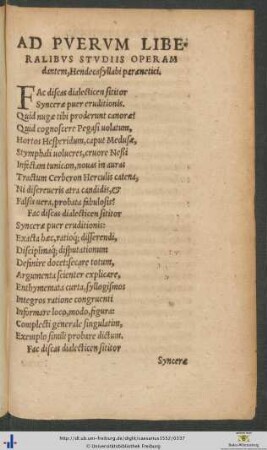 AD PVERVM LIBE-
RALIBVS STVDIIS OPERAM
dantem, Hendecasyllabi parænetici.
FAc discas dialecticen sititor
Synceræ puer eruditionis.
Quid nugæ tibi proderunt canoræ?
Quid cognoscere Pegasi uolatum,
Hortos Hesperidum, caput Medusæ,
Stymphali uolucres, cruore Nessi
Infectam tunicam, nouas in auras
Tractum Cerberon Herculis catena,
Ni discreueris atra candidis, &
Falsis uera, probata fabulosis?
Fac discas dialecticen sititor
Synceræ puer eruditionis:
Exacta hæc, ratioq; disserendi,
Disciplinaq; disputationum
Definire docet, secare totum,
Argumenta scienter explicare,
Enthymemata curta, syllogismos
Integros ratione congruenti
Informare loco, modo, figura:
Complecti generale singulatim,
Exemplo simili probare dictum.
Fac discas dialecticen sititor
Synceræ
http://dl.ub.uni-freiburg.de/diglit/caesarius1532/0337
© Universitätsbibliothek Freiburg